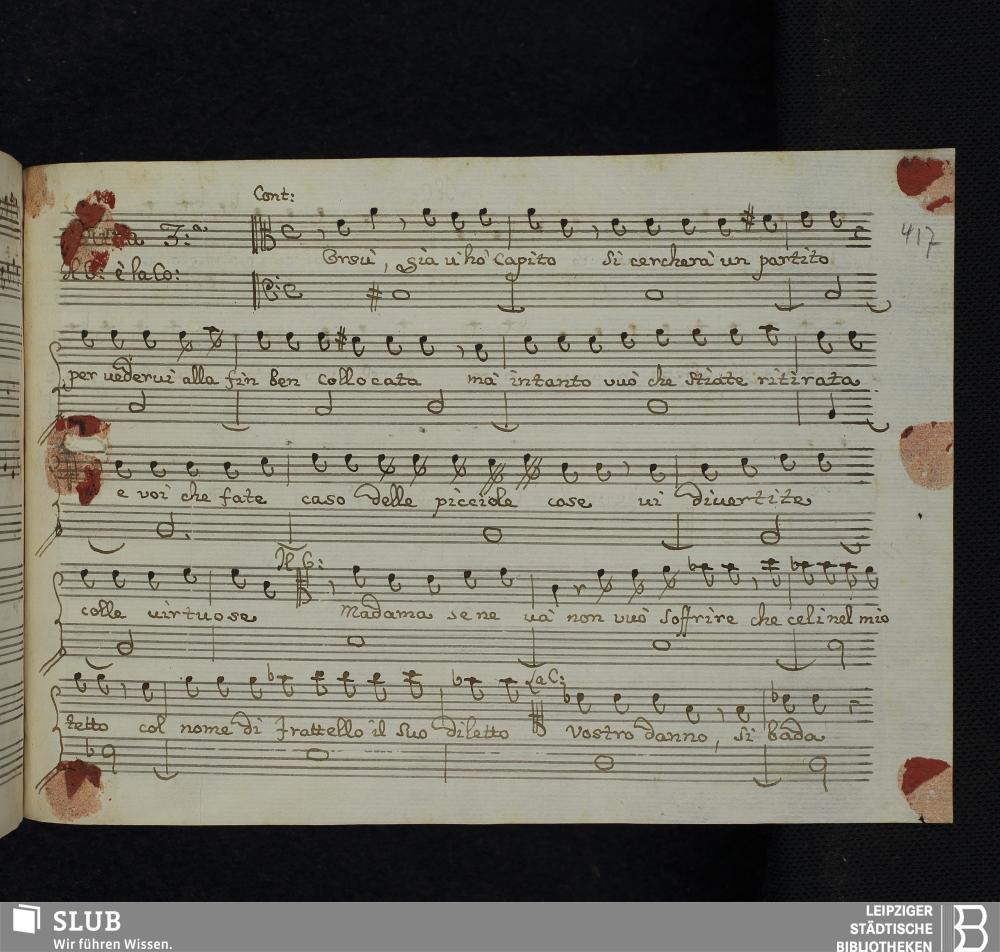 Cont:
3.a
417
Orsù, già v'hò Capito si cercherà un partito
è la Co:
per vedervi alla fin ben collocata mà intanto vuò che stiate ritirata
e voi che fate caso delle picciole cose vi divertite
Il C:
colle virtuose Madama se ne và non vuò soffrire che celi nel mio
La C:
tetto col nome di Frattello il suo diletto vostro danno, si bada
SLUB
Wir führen Wissen.
LEIPZIGER
STÄDTISCHE
BIBLIOTHEKEN